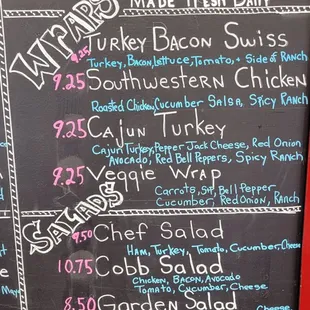 MADE FRESH DAILY
WRAPS
9.25 Turkey Bacon Swiss
Turkey, Bacon, Lettuce, Tomato, + Side of Ranch
9.25 Southwestern Chicken
Roasted Chicken, Cucumber Salsa, Spicy Ranch
9.25 Cajun Turkey
Cajun Turkey, Pepper Jack Cheese, Red Onion
Avocado, Red Bell Peppers, Spicy Ranch
9.25 Veggie Wrap
Carrots, Bell Pepper
Cucumber, Red Onion, Ranch
SALADS
9.50 Chef Salad
Ham, Turkey, Tomato, Cucumber, Cheese
10.75 Cobb Salad
Chicken, Bacon, Avocado
Tomato, Cucumber, Cheese
8.50 Garden Salad
Cheese
May